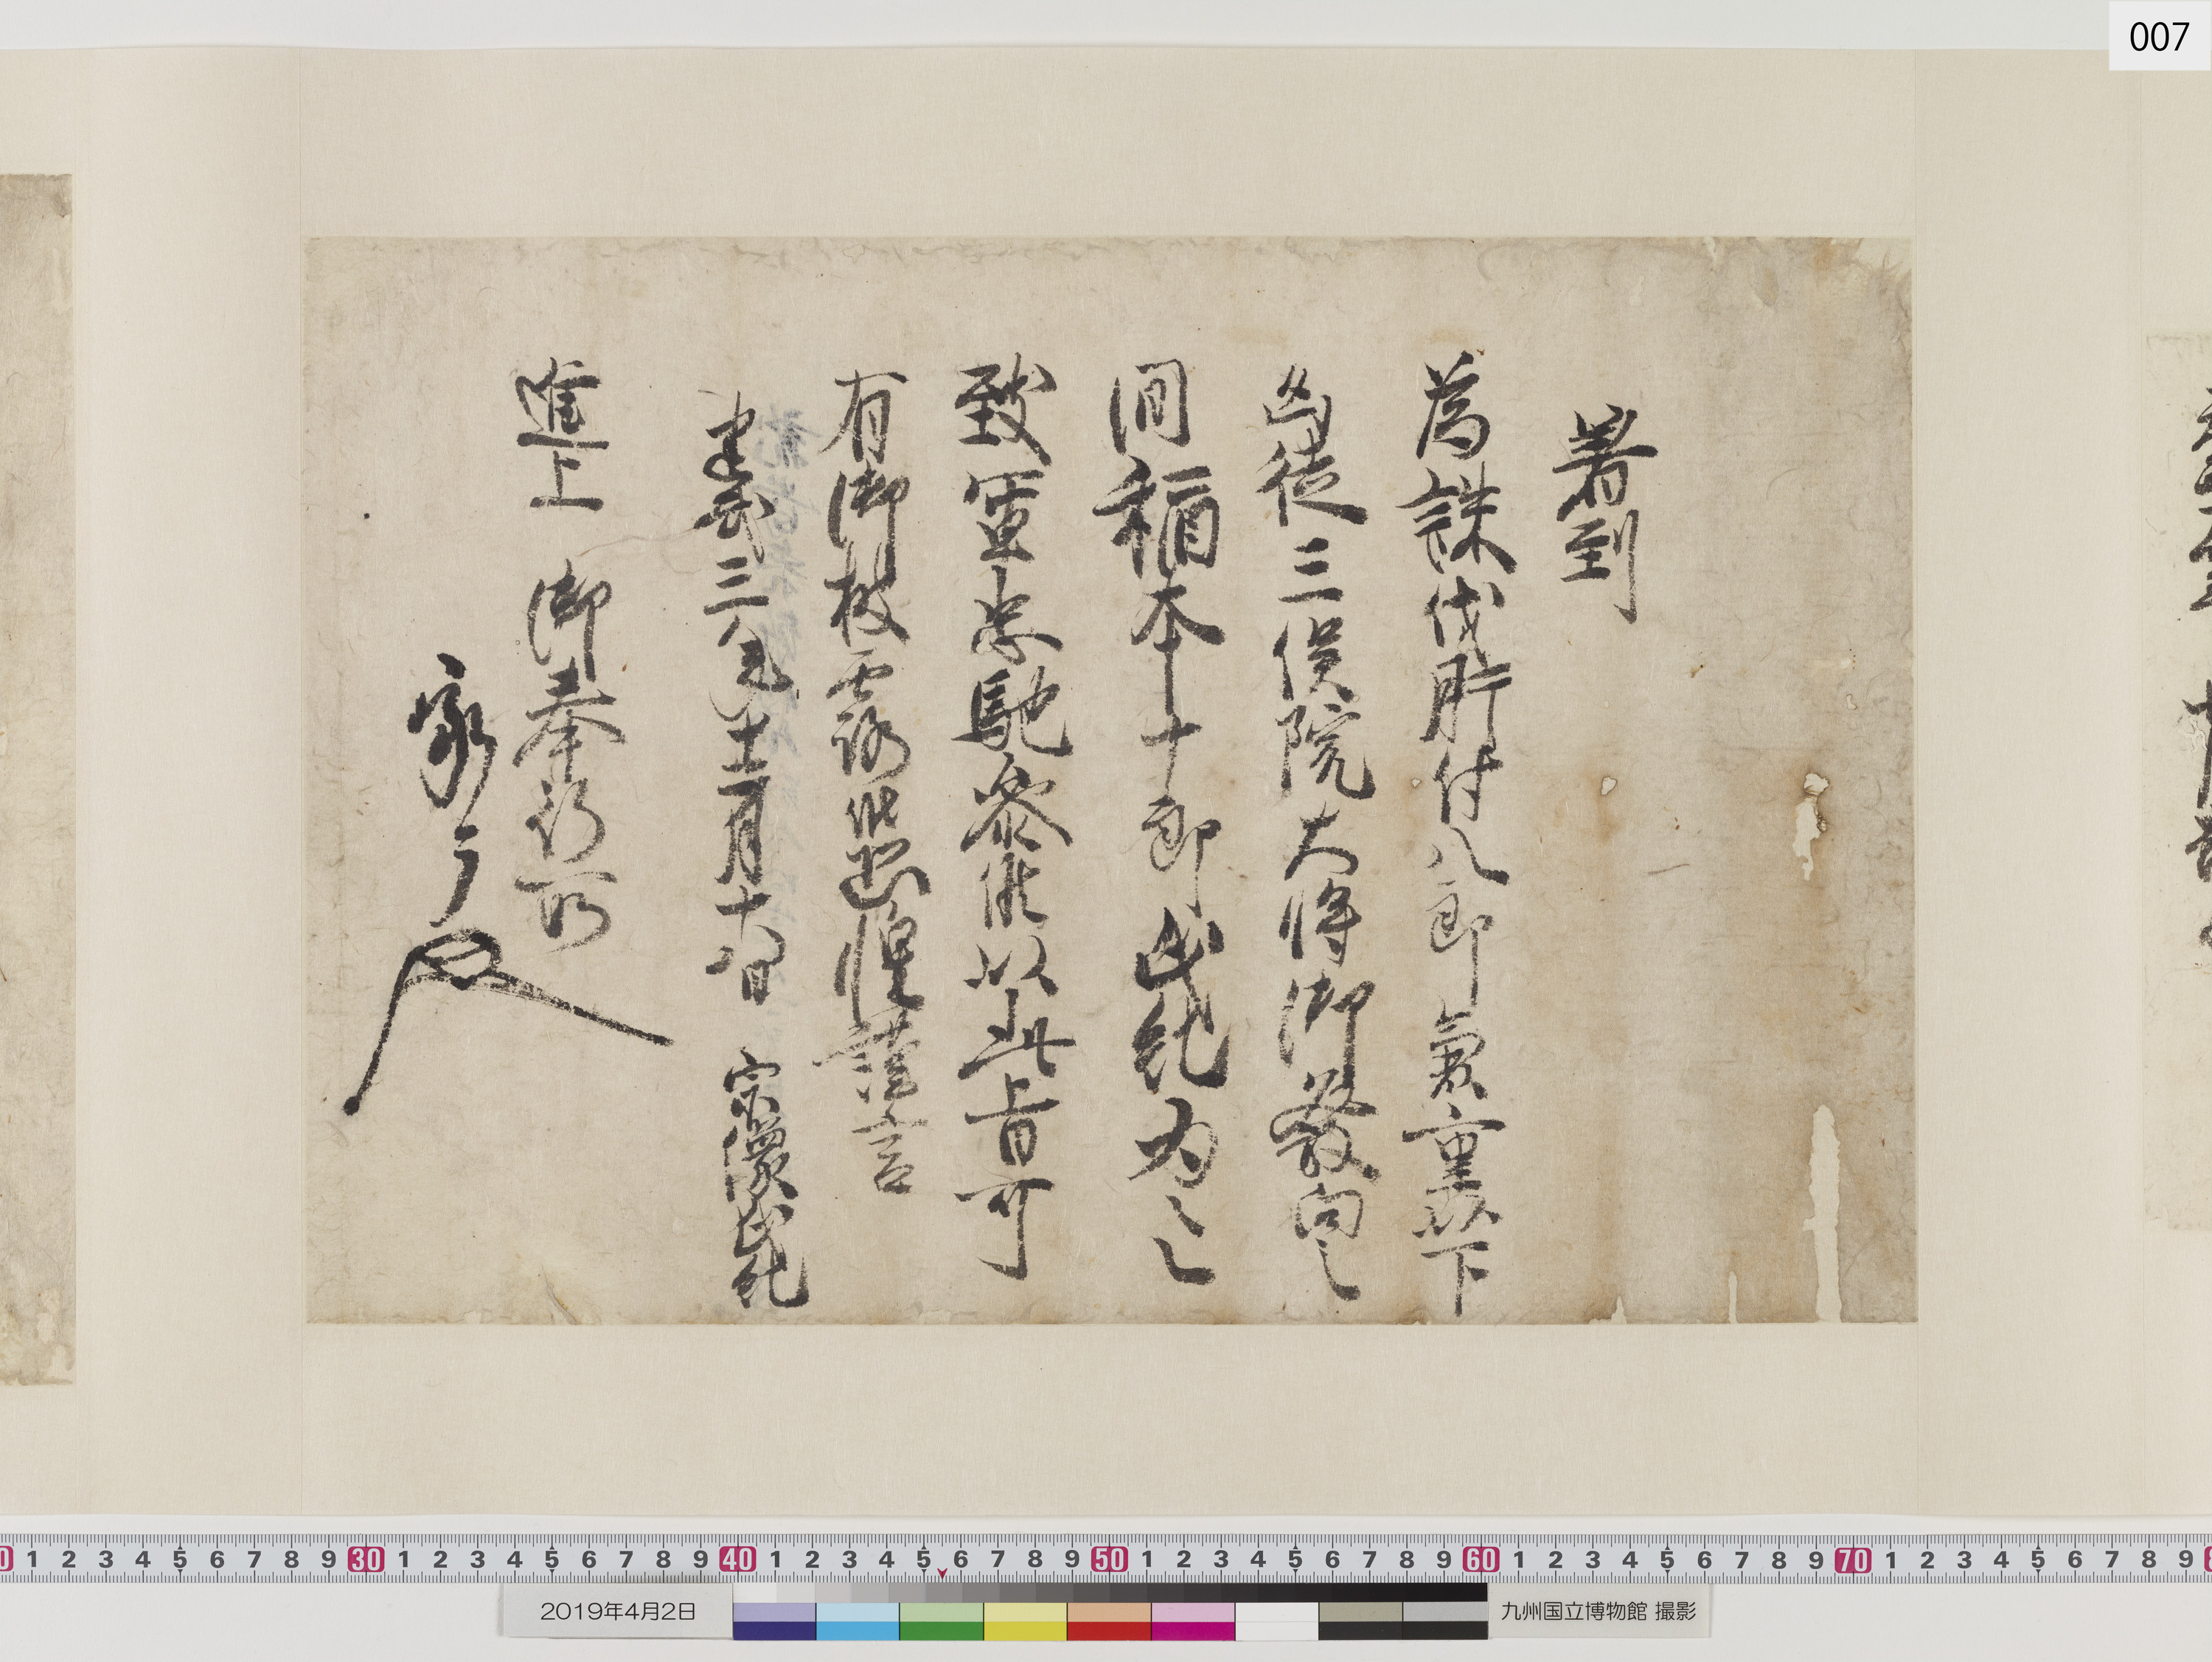 007
著到
為誅伐肝付八郎兼重以下
凶徒三俣院大将御發向之
間稲本十郎武純為之
致軍忠馳参候以此旨可
有御披露候恐惶謹言
建武三年十二月十八日 宗像武純
進上 御奉行所
承了
0 1 2 3 4 5 6 7 8 9 30 1 2 3 4 5 6 7 8 9 40 1 2 3 4 5 6 7 8 9 50 1 2 3 4 5 6 7 8 9 60 1 2 3 4 5 6 7 8 9 70 1 2 3 4 5 6 7 8 9 8
2019年4月2日
九州国立博物館 撮影